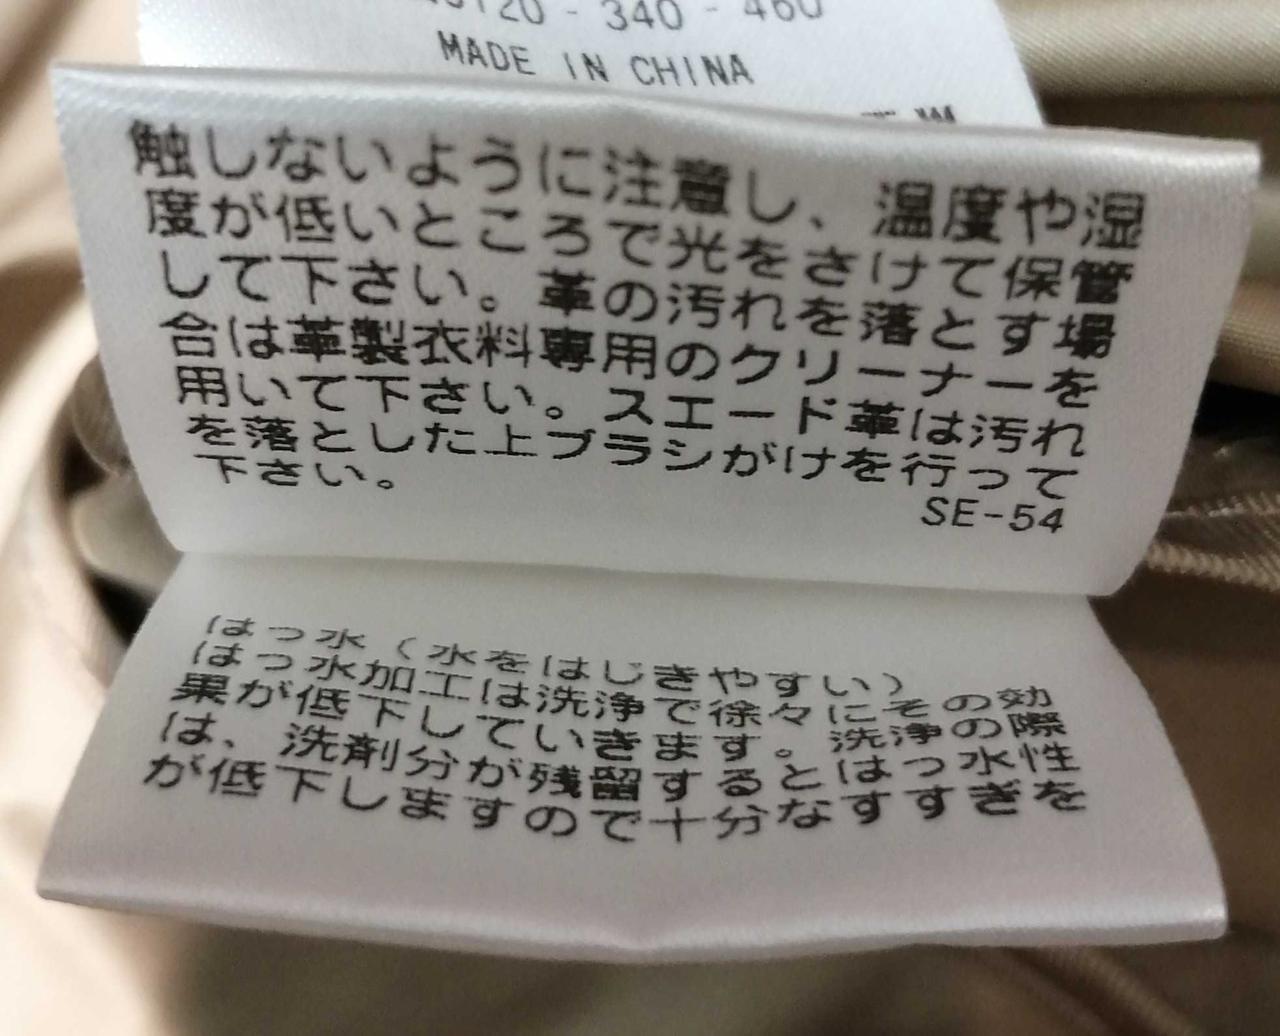 120 - 340 - 460
MADE IN CHINA
触しないように注意し、温度や湿
度が低いところで光をさけて保管
して下さい。革の汚れを落とす場
合は革製衣料専用のクリーナーを
用いて下さい。スエード革は汚れ
を落とした上ブラシがけを行って
下さい。
SE-54
はっ水(水をはじきやすい)
はっ水加工は洗浄で徐々にその効
果が低下していきます。洗浄の際
は、洗剤分が残留するとはっ水性
が低下しますので十分なすすぎを